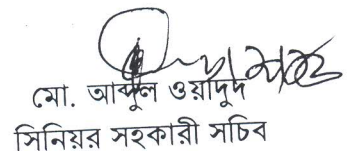 মো. আব্দুল ওয়াদুদ
সিনিয়র সহকারী সচিব